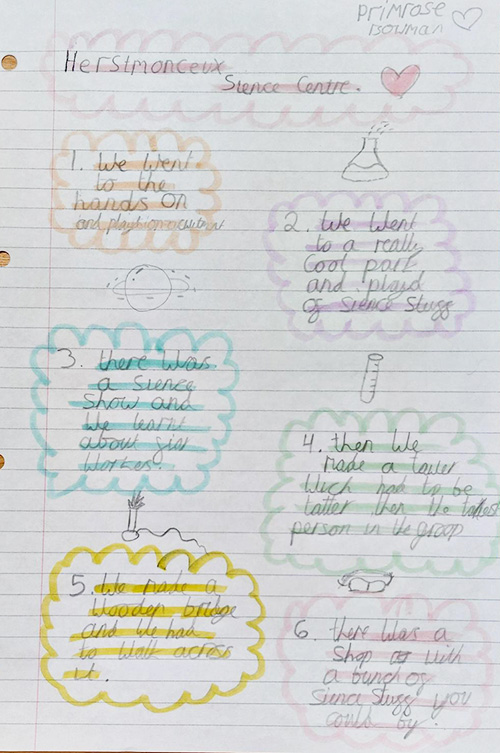 primrose
Bowman
Herstmonceux
Sience Centre.
1. We went
to the
hands on
and
2. We went
to a really
Cool part
and playd
of Sience Stugg
3. there was
a Sience
Show and
We learnt
about
Workes.
4. then We
made a tower
Wich had to be
tatter then the tattest
person in the groop
5. We made a
Wooden bridge
and We had
to Walk across
it.
6. there Was a
Shop with
a bunch of
Sience Stugg you
could by.